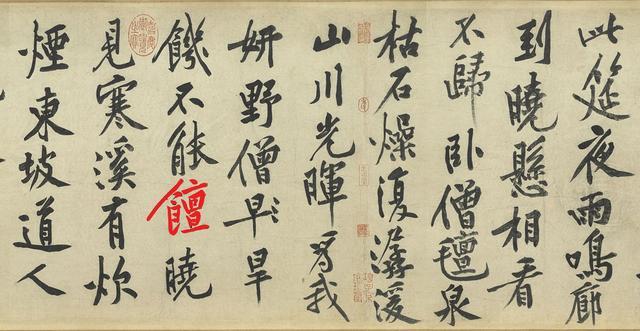 此筵夜雨鳴廊
到曉懸相看
不歸臥僧氈泉
枯石燥復潺湲
山川光暉為我
妍野僧早旱
饑不能饘曉
見寒溪有炊
煙東坡道人